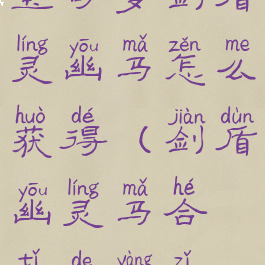 剑盾
líng yōu mǎ zěn me
灵幽马怎么
huò dé jiàn dùn
获得(剑盾
yōu líng mǎ hé
幽灵马合
tǐ de yàng zǐ